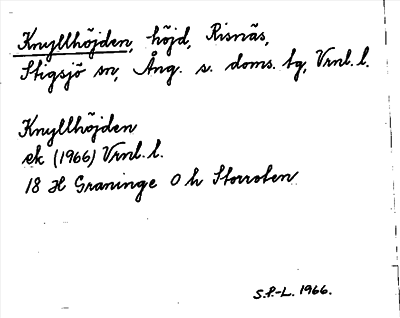 Knyllhöjden, höjd, Risnäs,
Stigsjö sn, Ång. s. doms. tg, Vrnl. l.
Knyllhöjden
ek (1966) Vrnl. l.
18 H Graninge 0 h Storroten
S.P.-L. 1966.